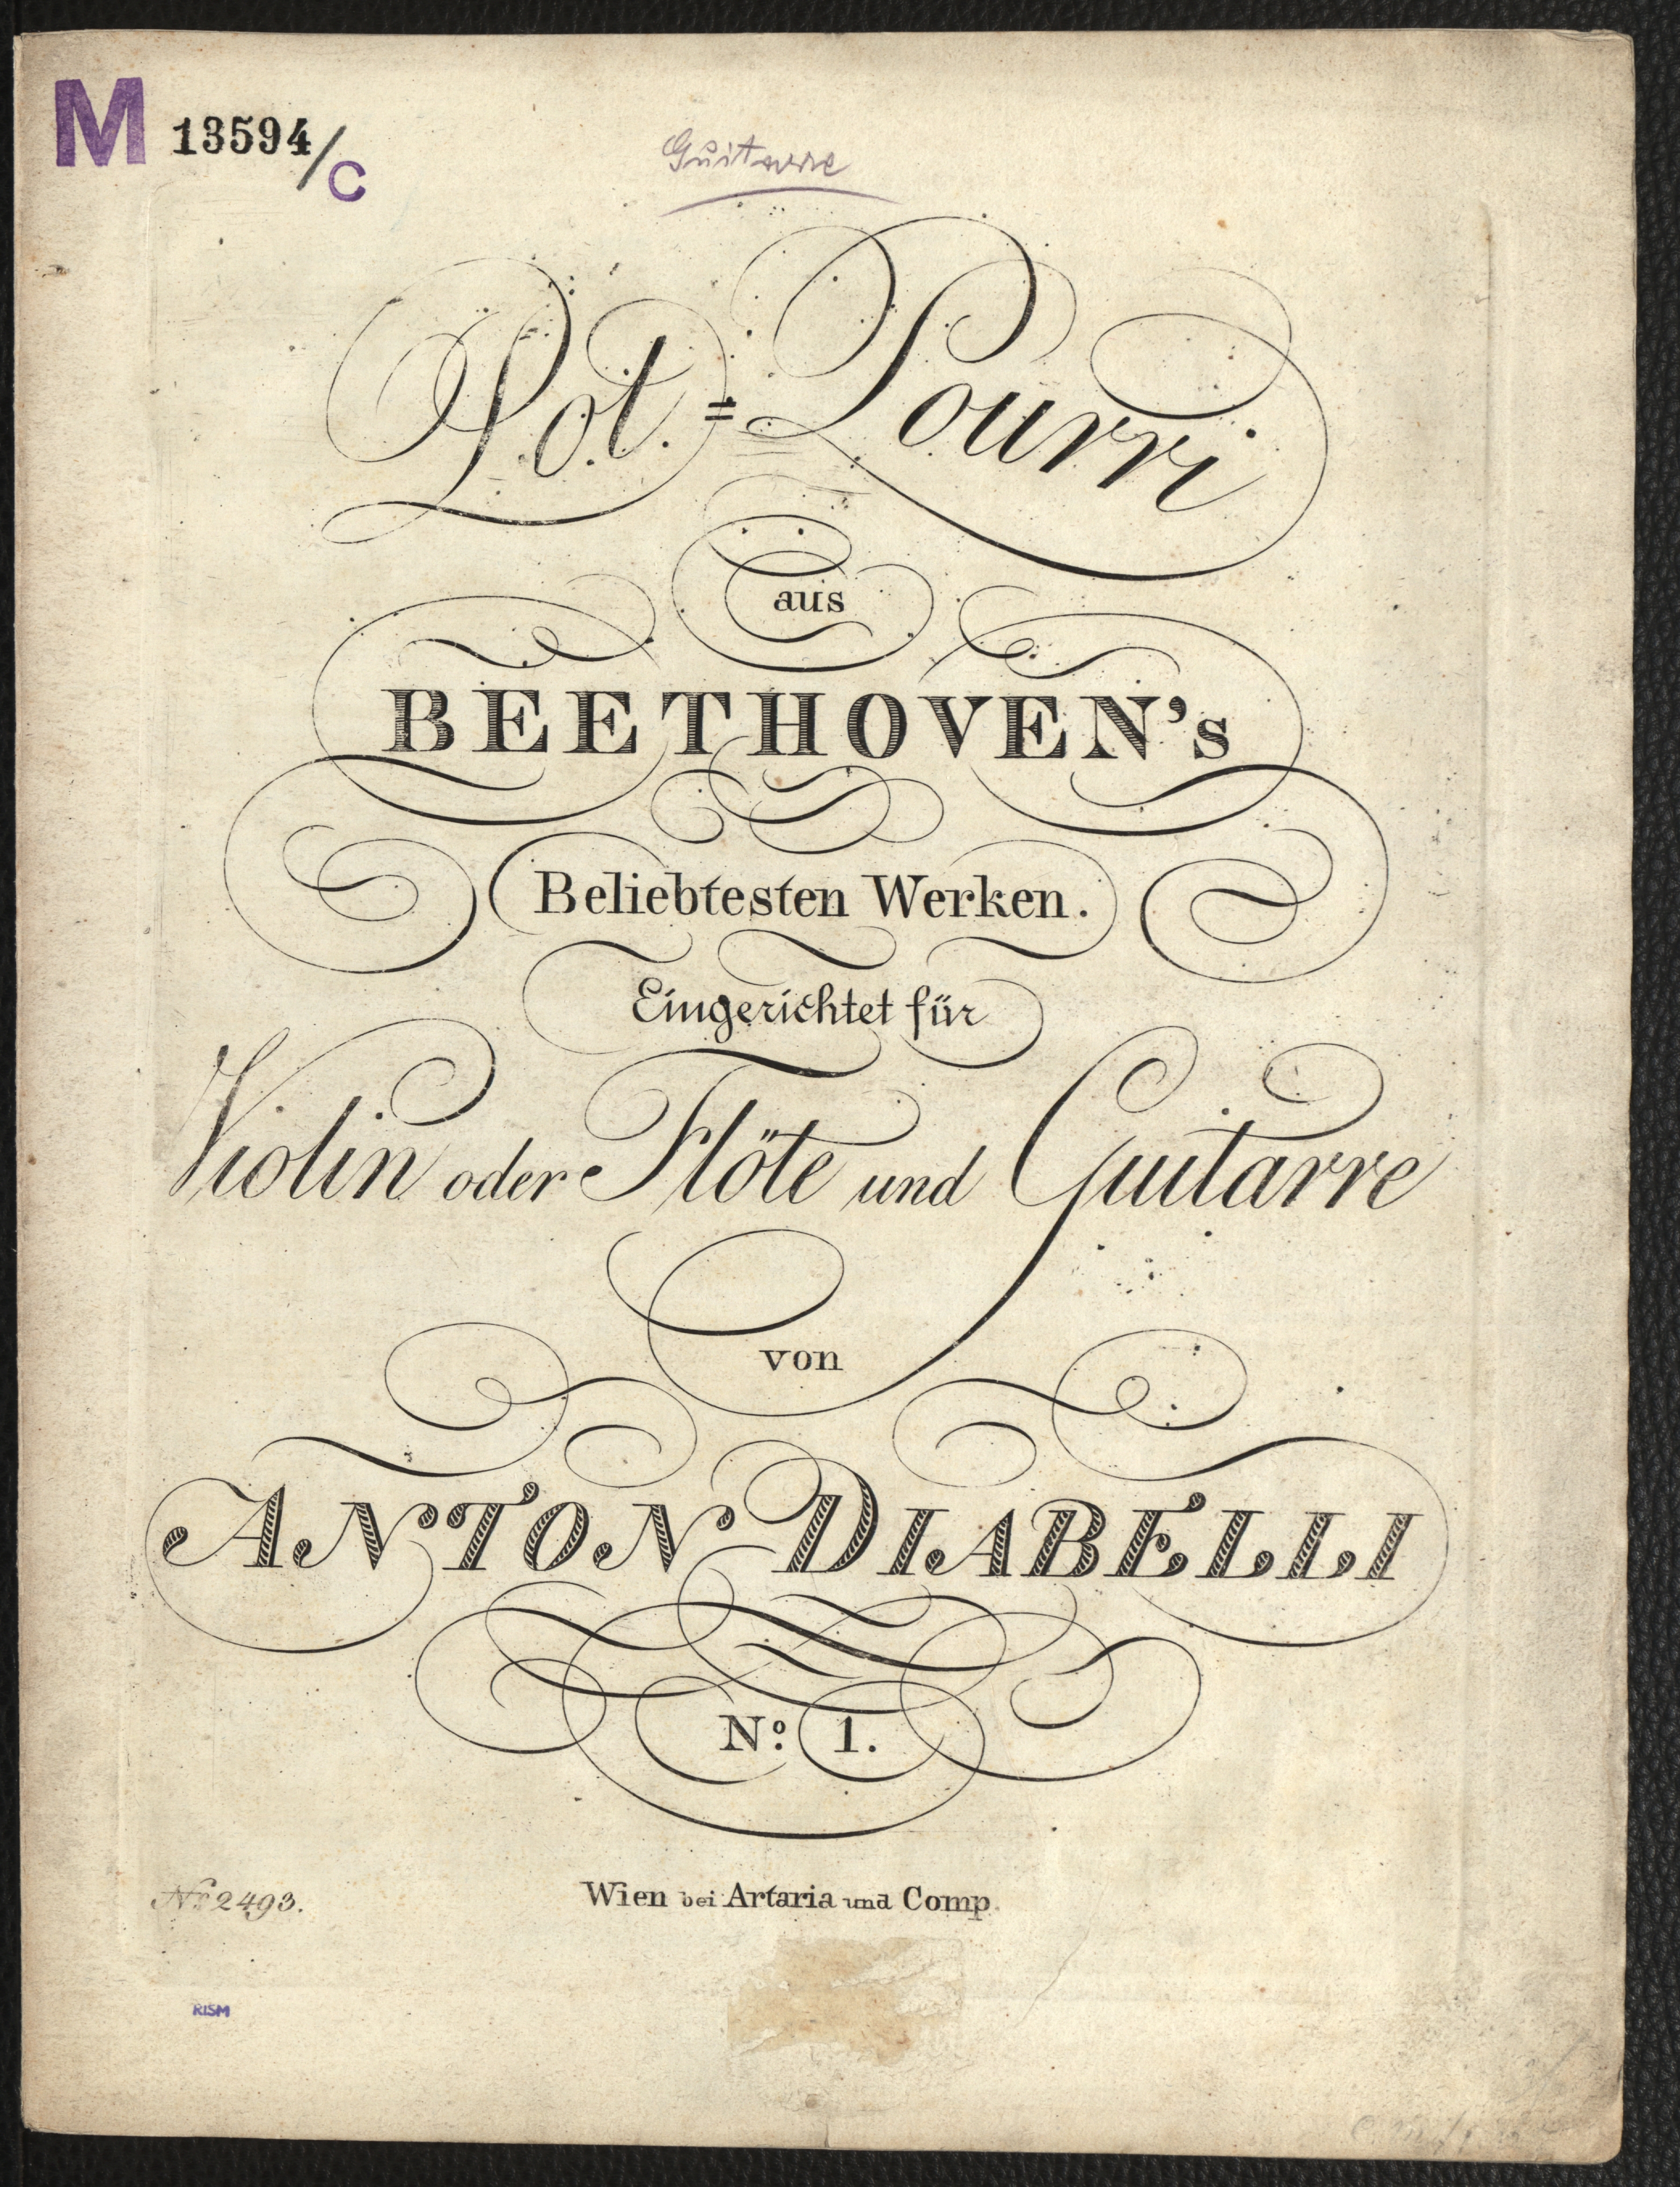 M 13594/C
Guitarre
Pot.=Pourri
aus
BEETHOVEN's
Beliebtesten Werken.
Eingerichtet für
Violin oder Flöte und Guitarre
von
ANTON DIABELLI
No. 1.
Nr. 2493.
Wien bei Artaria und Comp.
RISM